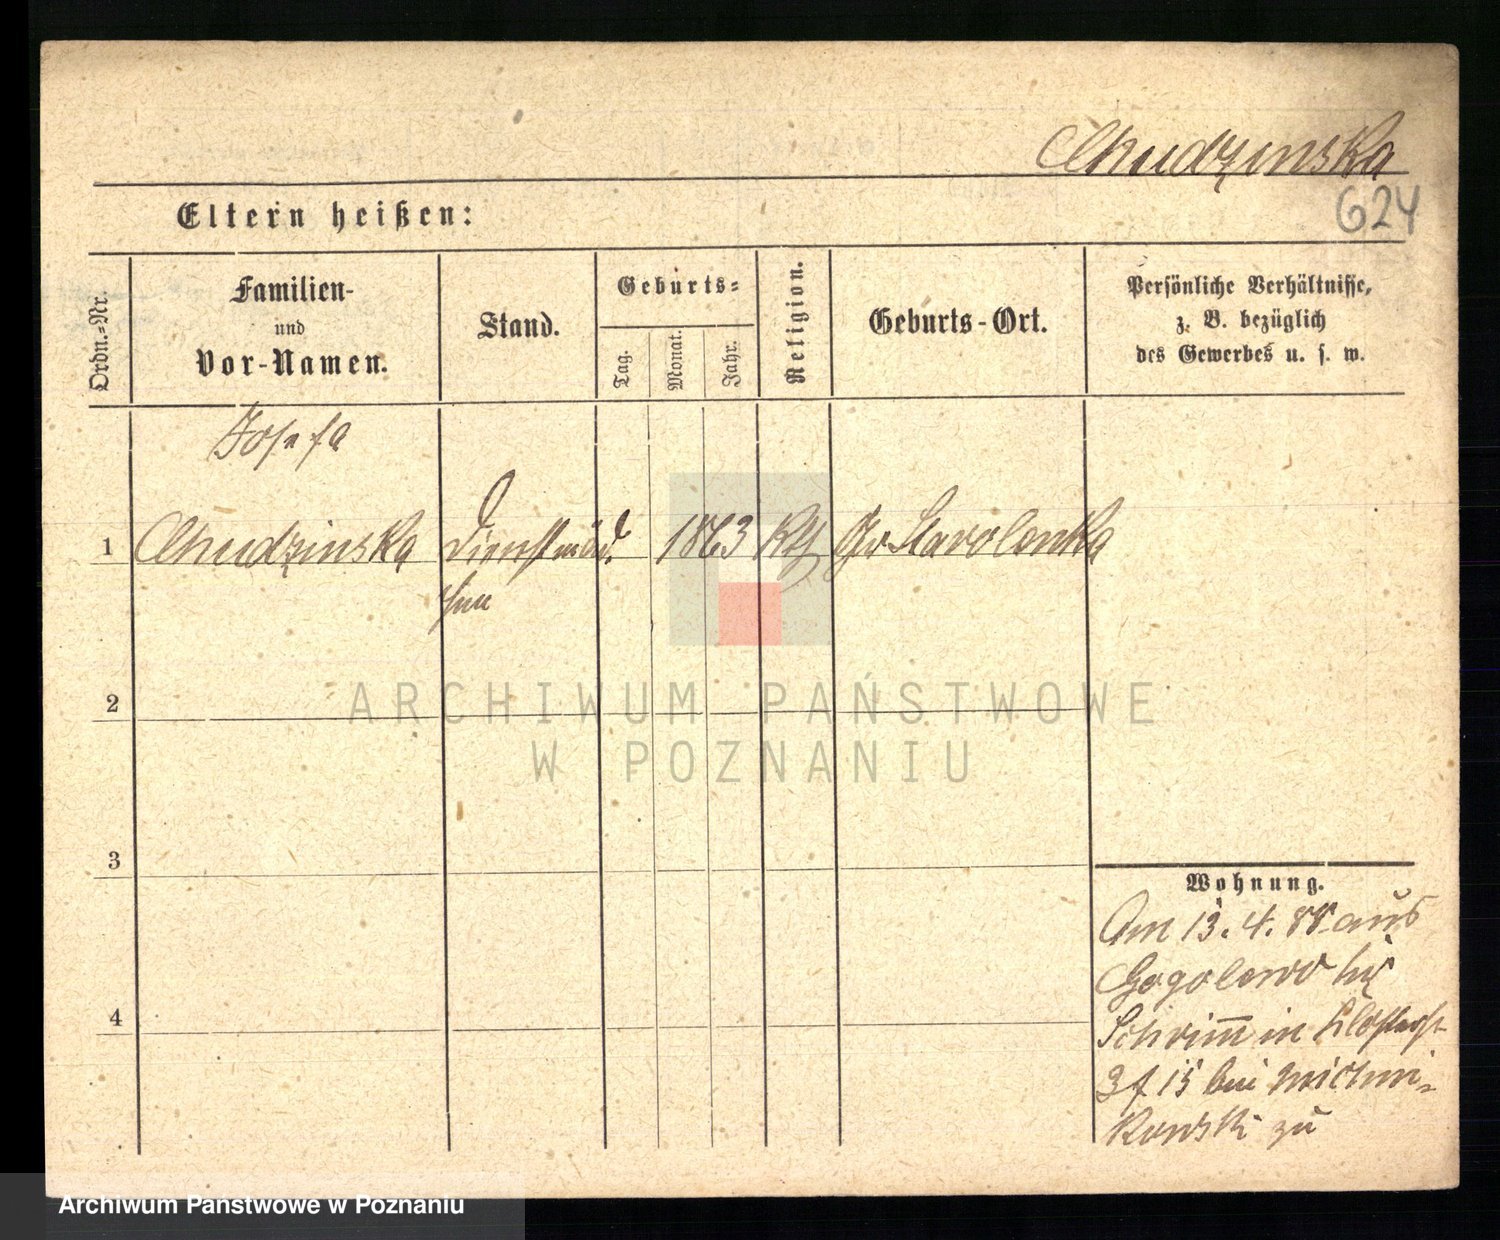 Chudzinska
624
Eltern heißen:
Ordn.-Nr.
Familien-
und
Vor-Namen.
Stand.
Geburts-
Tag.
Monat.
Jahr.
Religion.
Geburts-Ort.
Persönliche Verhältnisse,
z. B. bezüglich
des Gewerbes u. s. w.
Josefa
1 Chudzinska Dienstmäd. 1863 Kth Gr Starolenka
chen
2
3
4
Wohnung.
Am 13. 4. 88 aus
Gogolewo
Schrimm in Klosterst
15 bei
kowski zu
ARCHIWUM PAŃSTWOWE
W POZNANIU
Archiwum Państwowe w Poznaniu